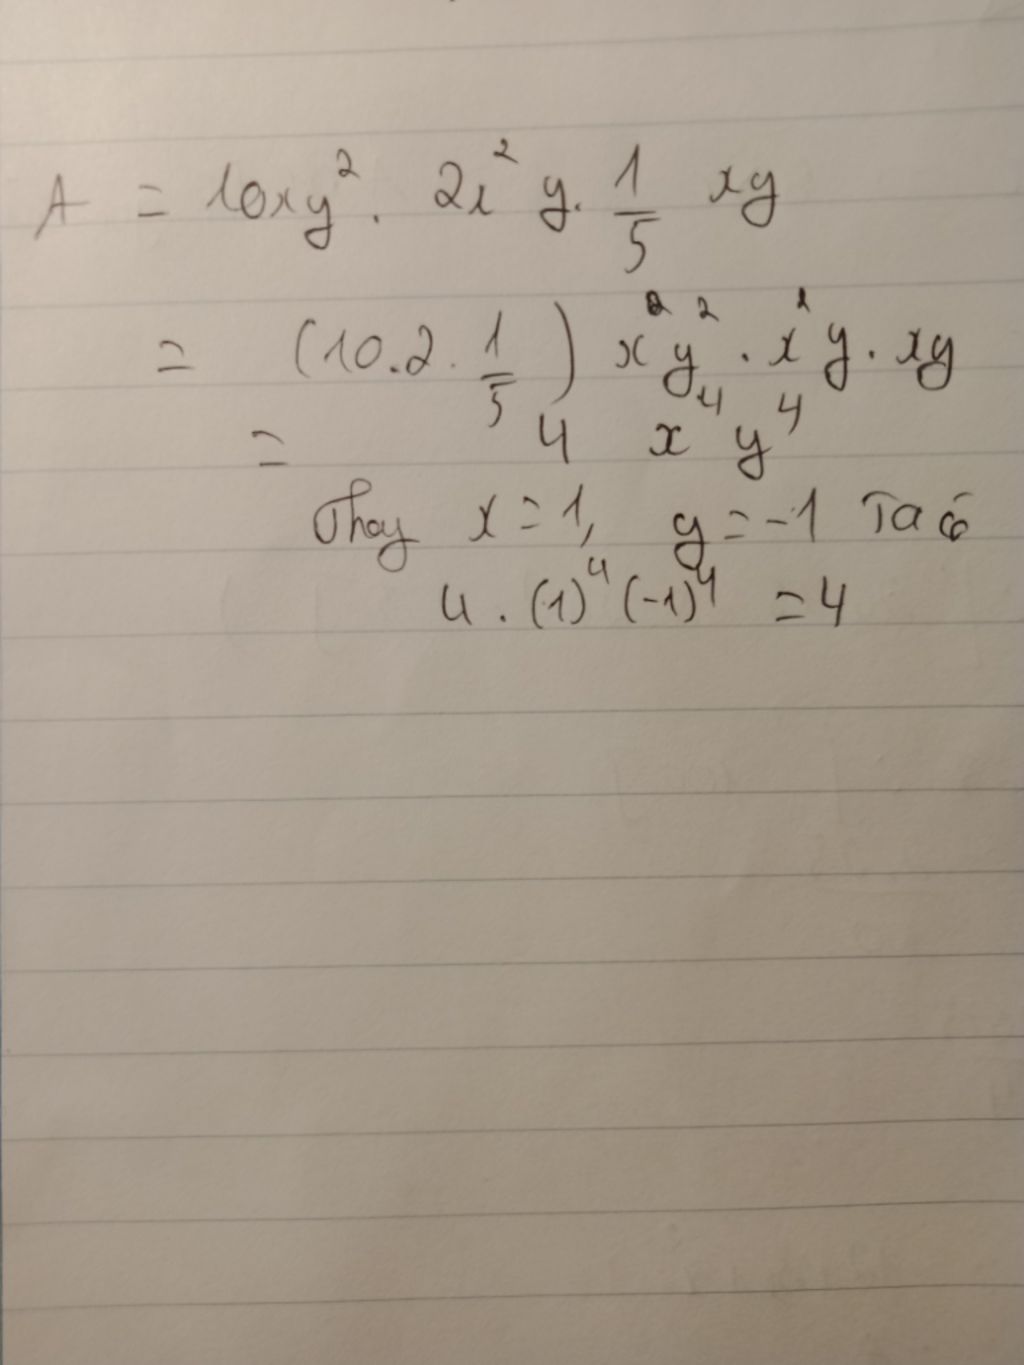 A = 10xy² . 2x² y . 1/5 xy
= (10.2. 1/5) x² y² . x² y . xy
= 4 x⁴ y⁴
Thay x = 1, y = -1 Ta có
4 . (1)⁴ (-1)⁴ = 4